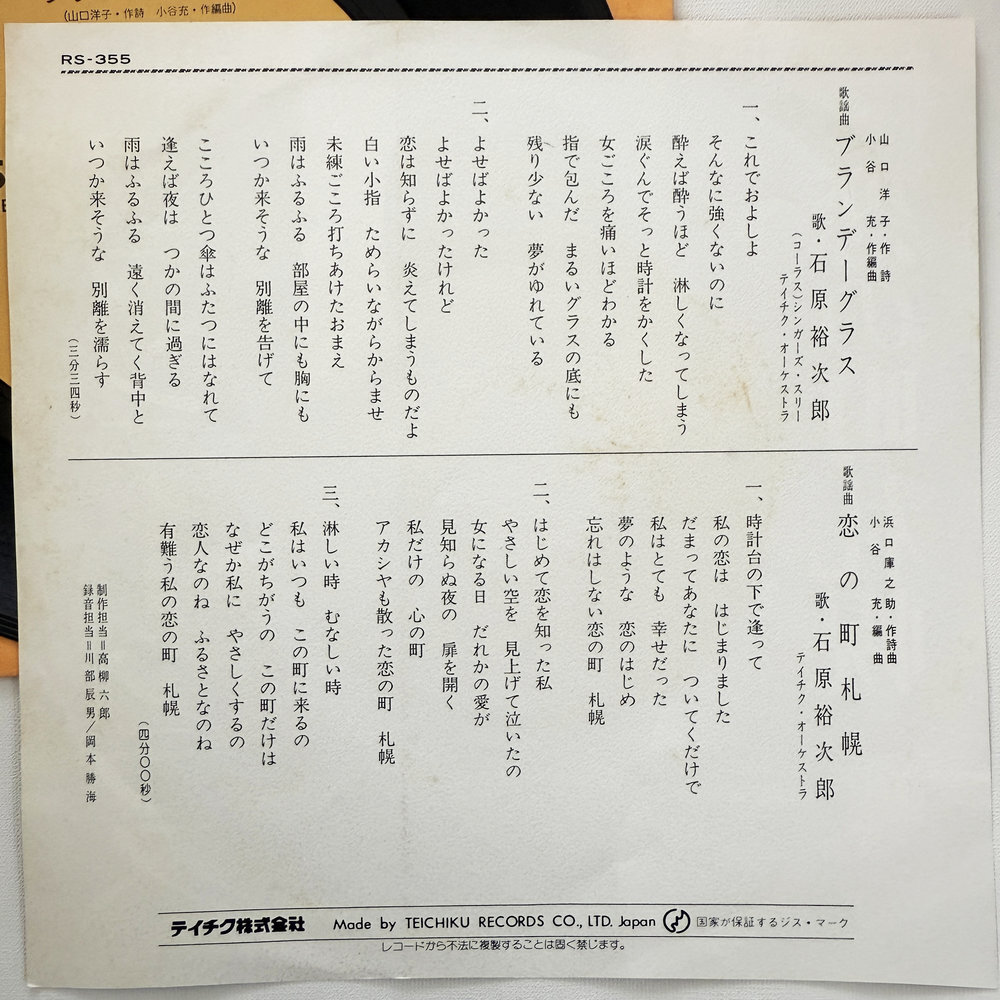 (山口洋子・作詩 小谷充・作編曲)
RS-355
歌謡曲 ブランデーグラス
山口洋子・作詩
小谷 充・作編曲
歌・石原裕次郎
(コーラス)シンガーズ・スリー
テイチク・オーケストラ
一、これでおよしよ
そんなに強くないのに
酔えば酔うほど 淋しくなってしまう
涙ぐんでそっと時計をかくした
女ごころを痛いほどわかる
指で包んだ まるいグラスの底にも
残り少ない 夢がゆれている
二、よせばよかった
よせばよかったけれど
恋は知らずに 炎えてしまうものだよ
白い小指 ためらいながらからませ
未練ごころ打ちあけたおまえ
雨はふるふる 部屋の中にも胸にも
いつか来そうな 別離を告げて
こころひとつ傘はふたつにはなれて
逢えば夜は つかの間に過ぎる
雨はふるふる 遠く消えてく背中と
いつか来そうな 別離を濡らす
(三分三四秒)
歌謡曲 恋の町札幌
浜口庫之助・作詩曲
小谷 充・編曲
歌・石原裕次郎
テイチク・オーケストラ
一、時計台の下で逢って
私の恋は はじまりました
だまってあなたに ついてくだけで
私はとても 幸せだった
夢のような 恋のはじめ
忘れはしない恋の町 札幌
二、はじめて恋を知った私
やさしい空を 見上げて泣いたの
女になる日 だれかの愛が
見知らぬ夜の 扉を開く
私だけの 心の町
アカシヤも散った恋の町 札幌
三、淋しい時 むなしい時
私はいつも この町に来るの
どこがちがうの この町だけは
なぜか私に やさしくするの
恋人なのね ふるさとなのね
有難う私の恋の町 札幌
(四分〇〇秒)
制作担当=高柳六郎
録音担当=川部辰男/岡本勝海
テイチク株式会社 Made by TEICHIKU RECORDS CO., LTD. Japan 国家が保証するジス・マーク
レコードから不法に複製することは固く禁じます。